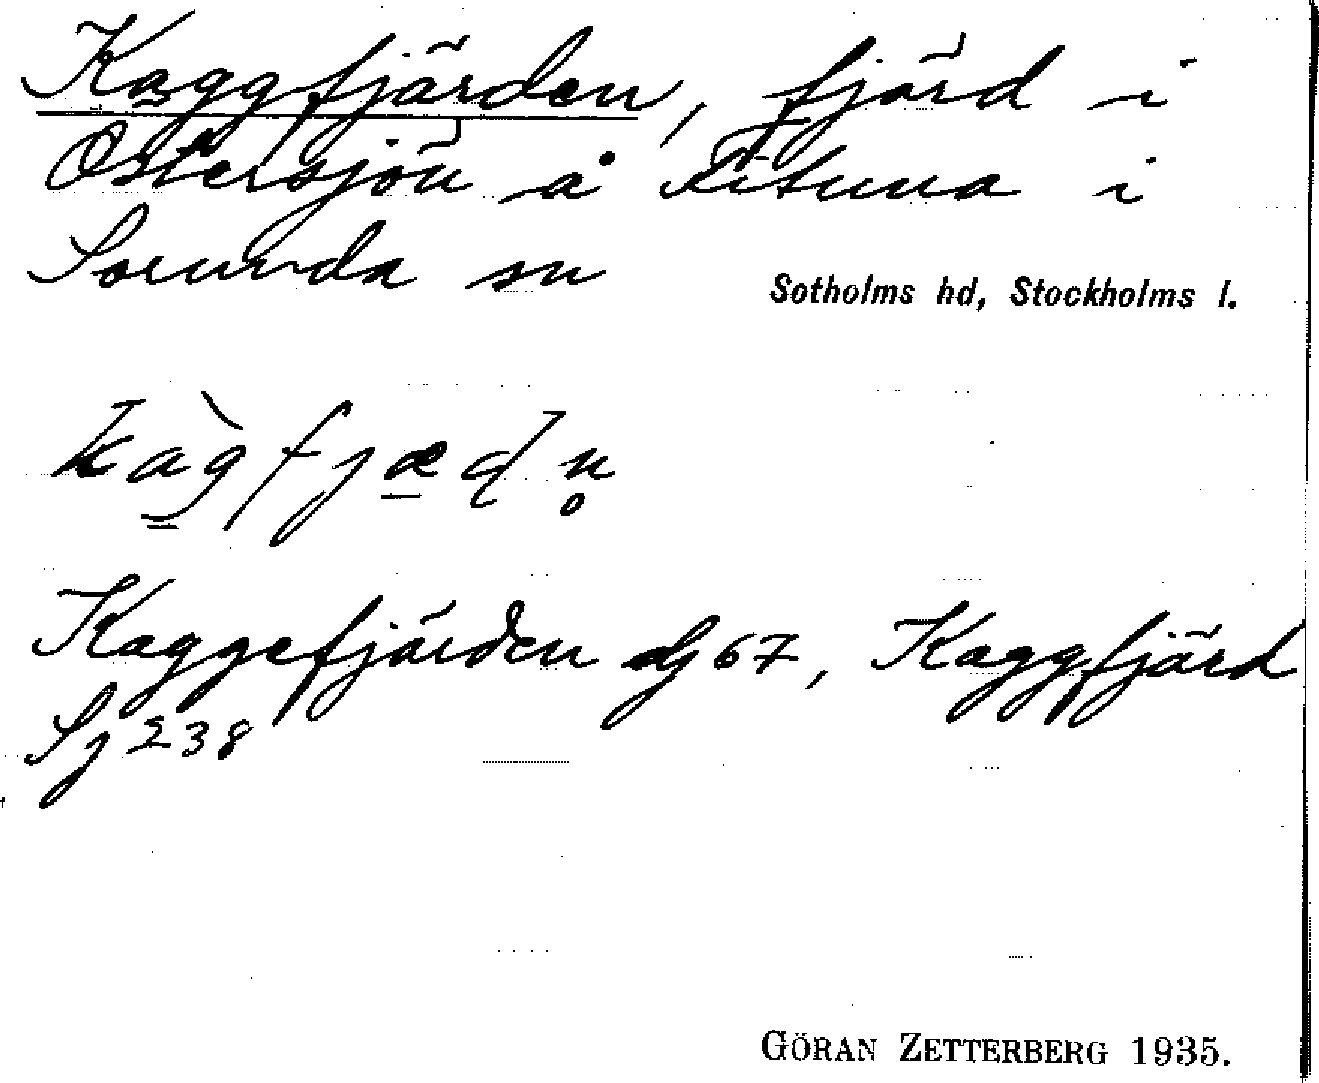 Kaggfjärden, fjärd i
Östersjön å Fituna i
Sorunda sn
Sotholms hd, Stockholms l.
kag̀fjæɖn̥
Kaggefjärden dj 67, Kaggfjärd
Sj 238
GÖRAN ZETTERBERG 1935.